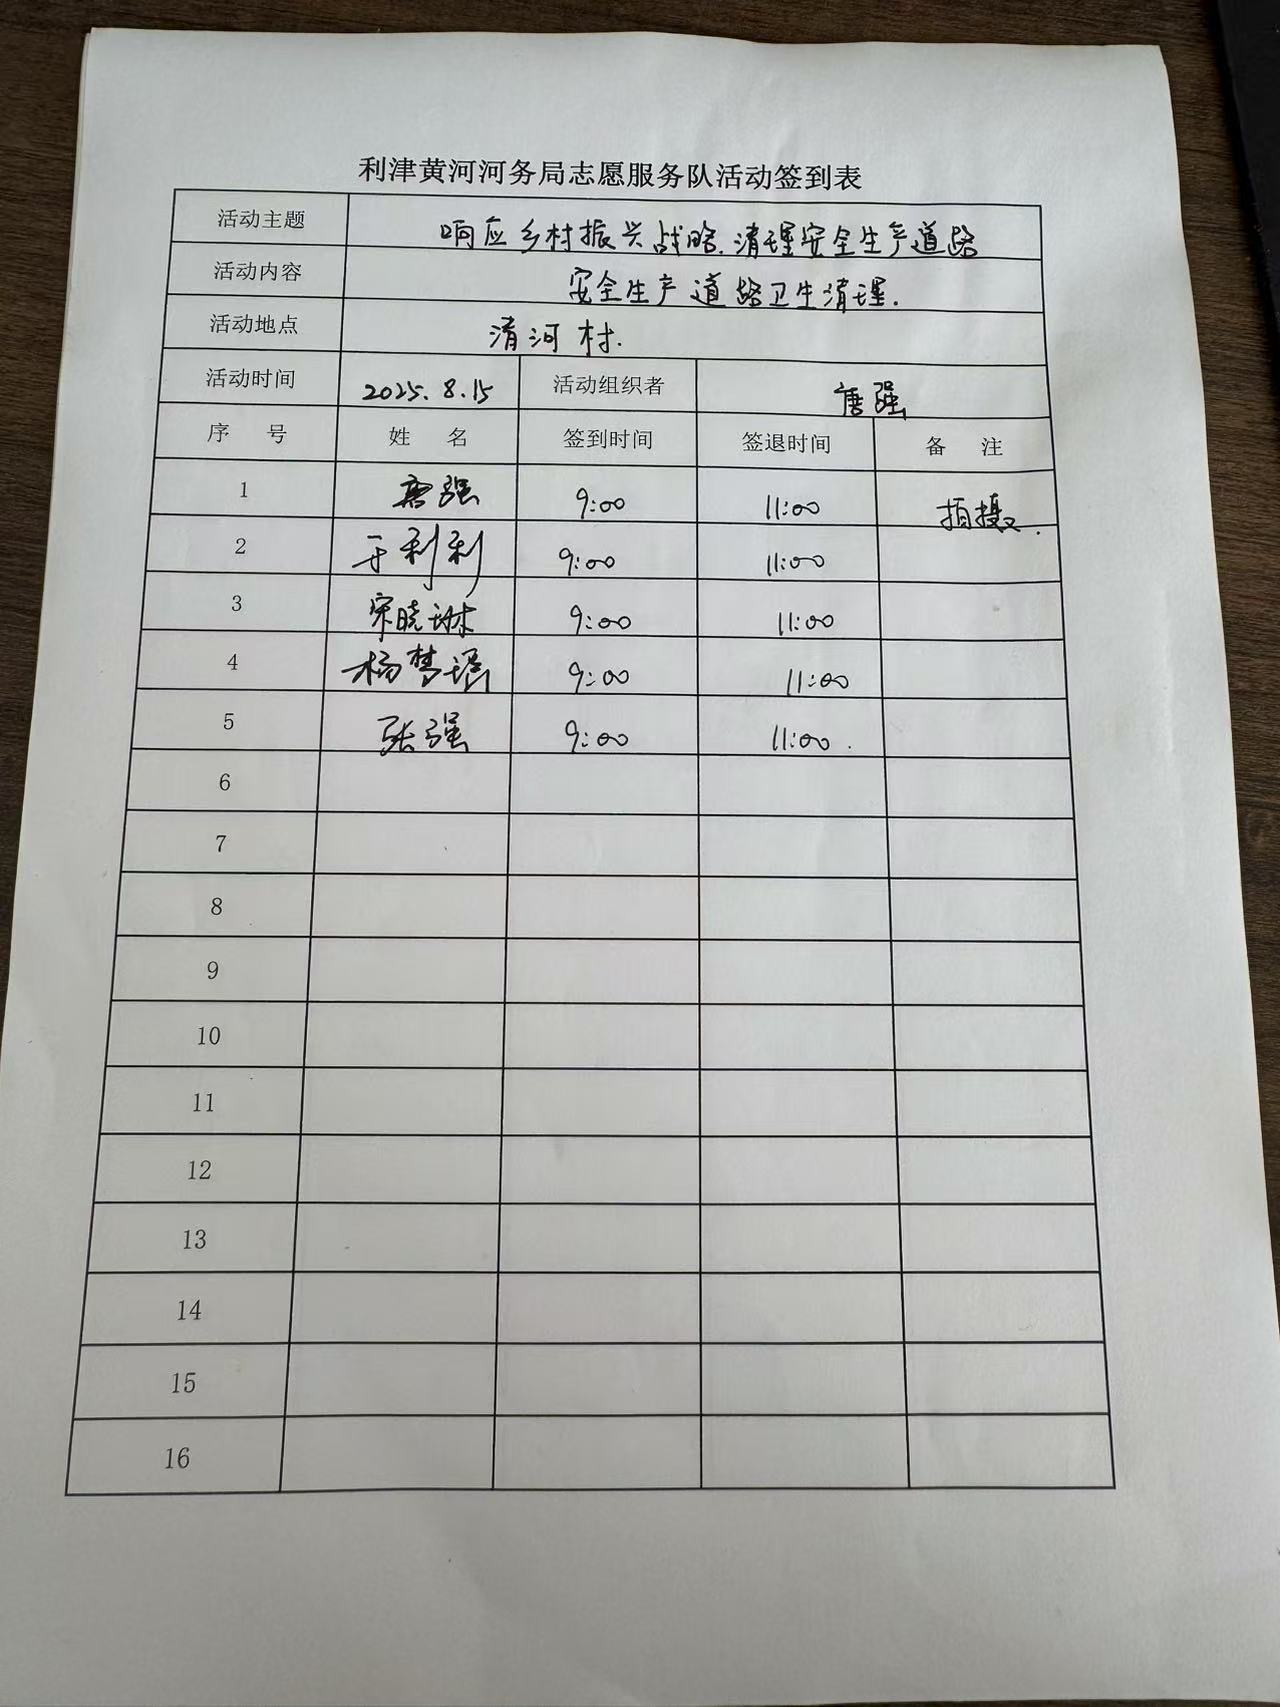 利津黄河河务局志愿服务队活动签到表
活动主题 响应乡村振兴战略.清理安全生产道路
活动内容 安全生产道路卫生清理.
活动地点 清河村.
活动时间 2025.8.15 活动组织者 唐强
序 号 姓 名 签到时间 签退时间 备 注
1 唐强 9:00 11:00 拍摄.
2 于利利 9:00 11:00
3 宋晓琳 9:00 11:00
4 杨梦瑶 9:00 11:00
5 张强 9:00 11:00.
6
7
8
9
10
11
12
13
14
15
16